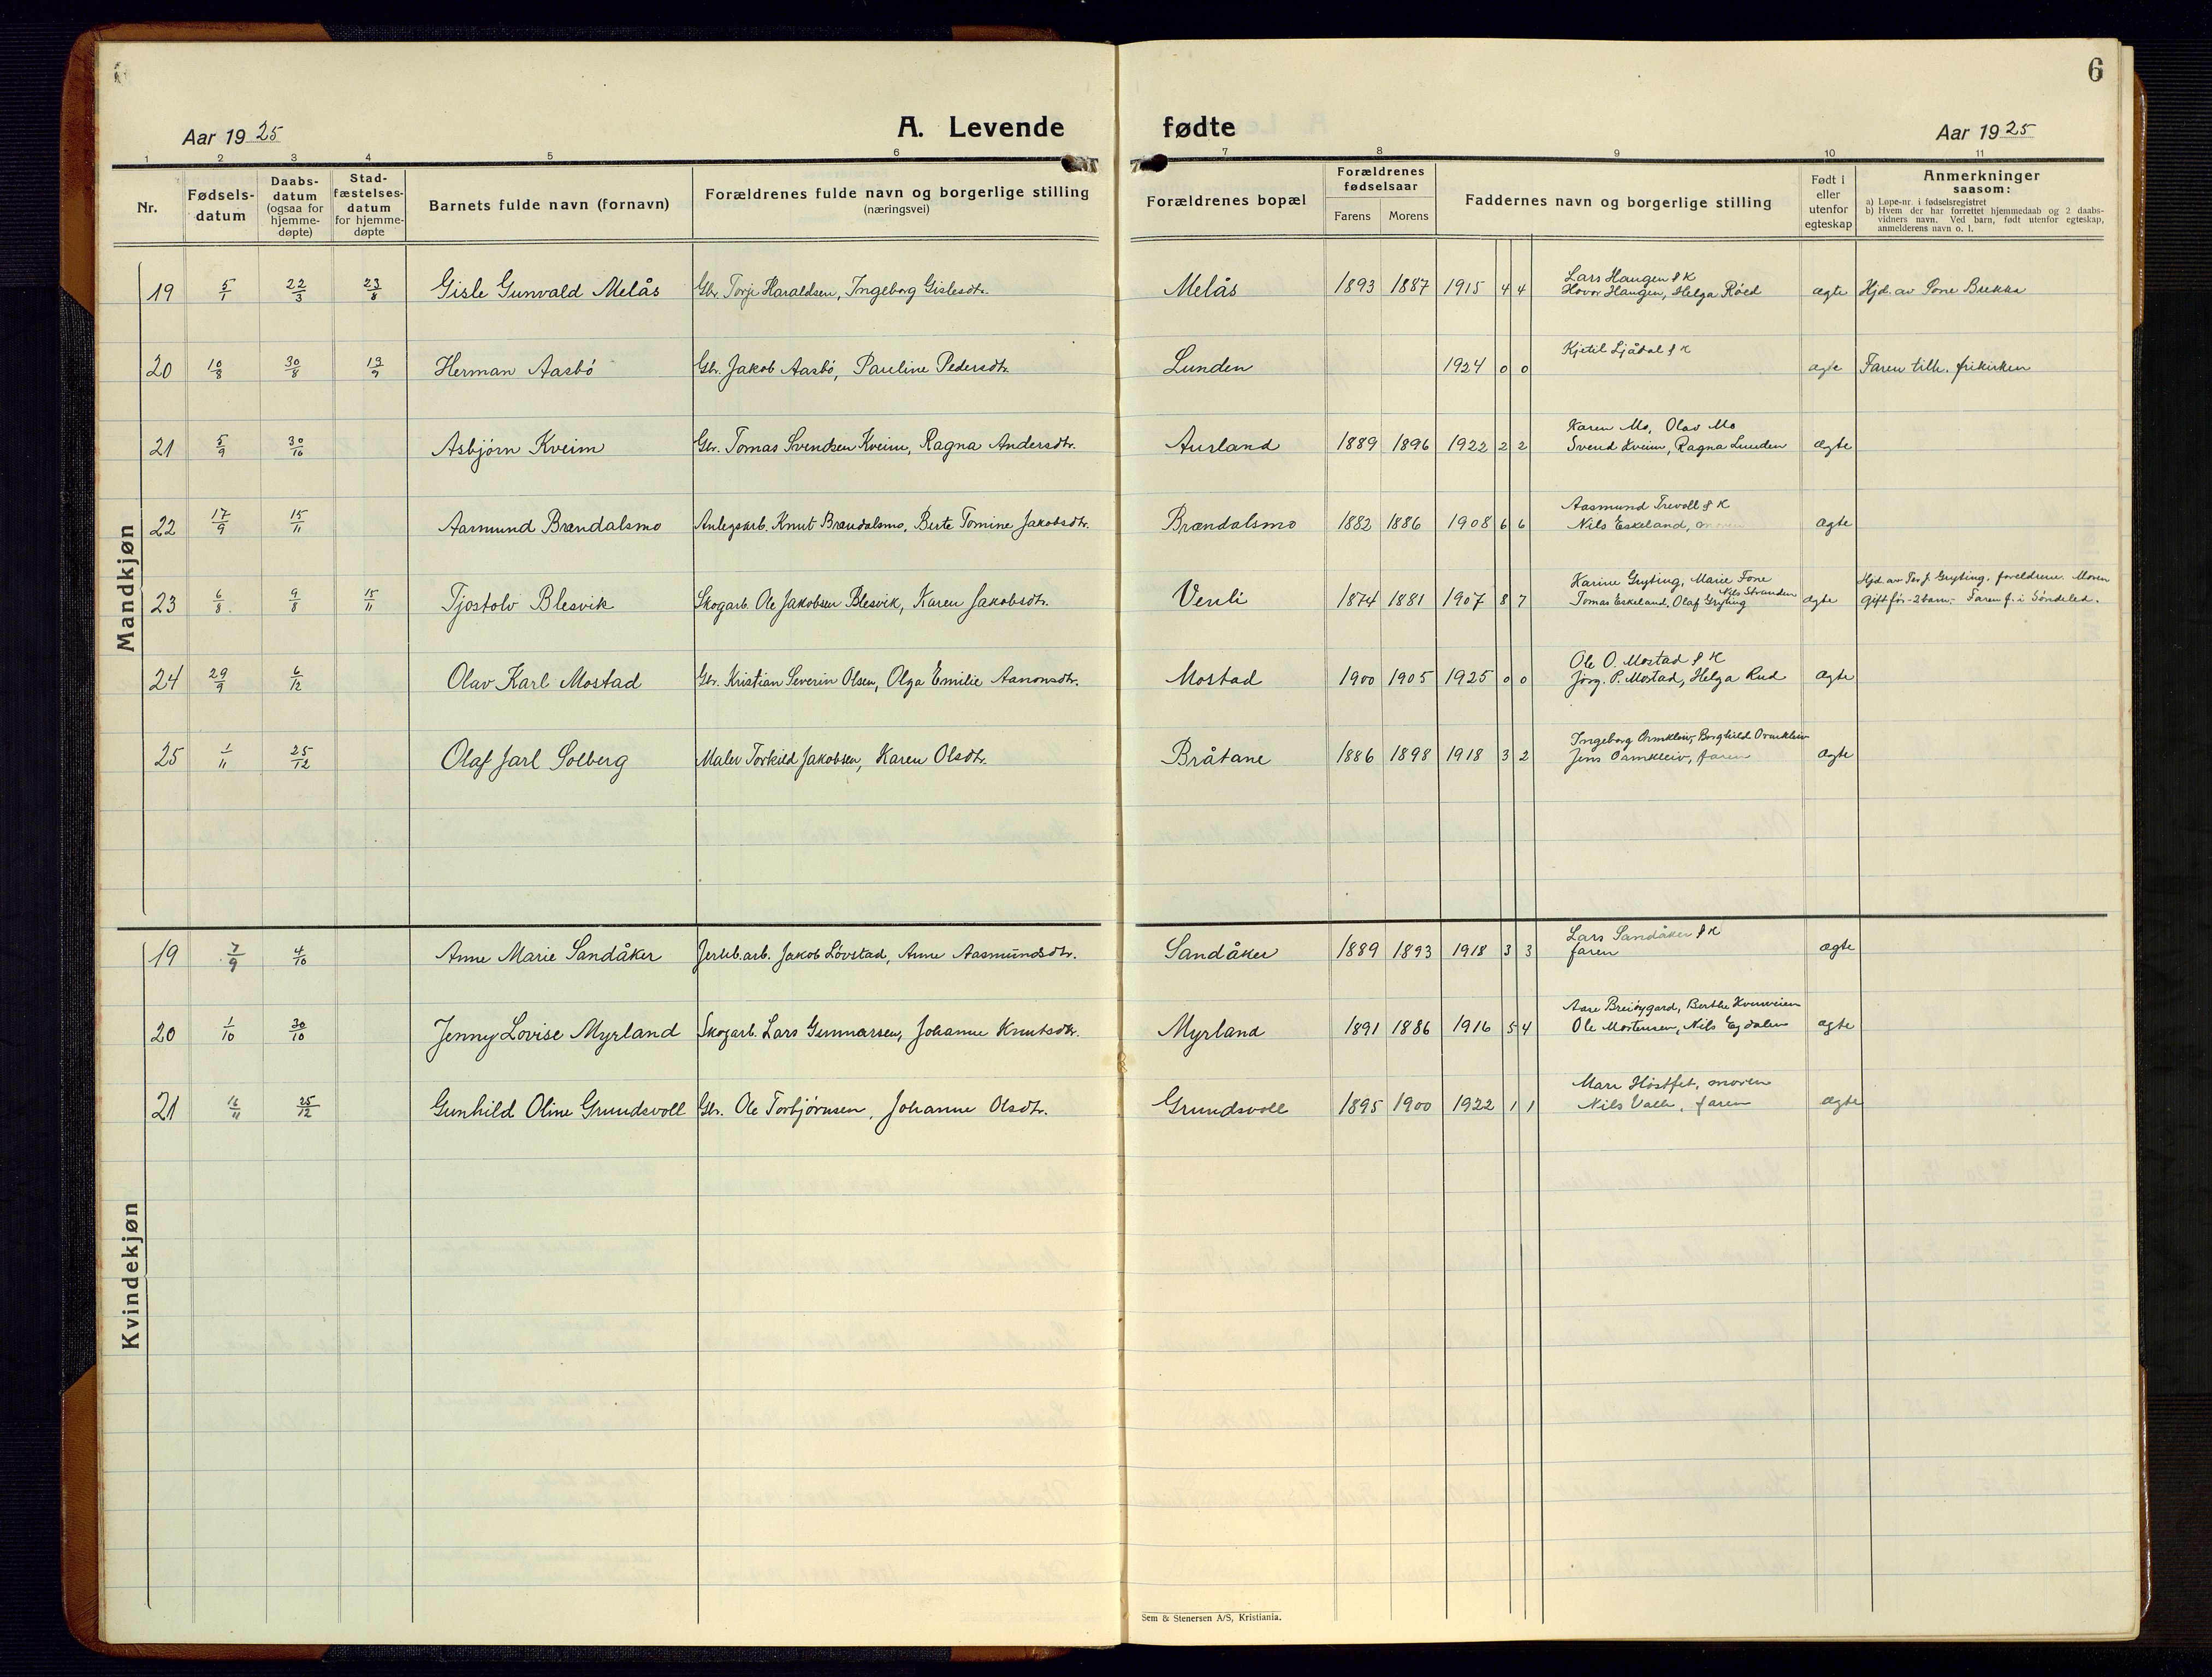 6
Aar 1925
A. Levende fødte
Aar 1925
1 2 3 4 5 6 7 8 9 10 11
Nr.
Fødsels-
datum
Daabs-
datum
(ogsaa for
hjemme-
døpte)
Stad-
fæstelses-
datum
for hjemme-
døpte
Barnets fulde navn (fornavn)
Forældrenes fulde navn og borgerlige stilling
(næringsvei)
Forældrenes bopæl
Forældrenes
fødselsaar
Farens Morens
Faddernes navn og borgerlige stilling
Født i
eller
utenfor
egteskap
Anmerkninger
saasom:
a) Løpe-nr. i fødselsregistret
b) Hvem der har forrettet hjemmedaab og 2 daabs-
vidners navn. Ved barn, født utenfor egteskap,
anmelderens navn o. l.
Mandkjøn
Lars Haugen & K
19 5/1 22/3 23/8 Gisle Gunvald Melås Gbr. Torje Haraldsen, Ingeborg Gislesdtr. Melås 1893 1887 1915 4 4 Hovor Haugen, Helga Röed ægte Hjd. av Tone Brekka
Kjetil Ljådal & K
20 10/8 30/8 13/9 Herman Aasbó Gbr. Jakob Aasbó, Pauline Pedersdtr. Lunden 1924 0 0 ægte Faren tilh. frikirken
Karen Mo, Olav Mo
21 5/9 30/10 Asbjørn Kveim Gbr. Tomas Svendsen Kveim, Ragna Andersdtr. Aurland 1889 1896 1922 2 2 Svend Kveim, Ragna Lunden ægte
Aasmund Trevoll & K
22 17/9 15/11 Aasmund Brændalsmo Anlegsarb. Knut Brændalsmo, Berte Tomine Jakobsdtr. Brændalsmo 1882 1886 1908 6 6 Nils Eskeland, moren ægte
Karine Gryting, Marie Fone
Nils Stranden
Hjd. av Per J. Gryting, foreldrene. Moren
23 6/8 9/8 15/11 Tjostolv Blesvik Skogarb. Ole Jakobsen Blesvik, Karen Jakobsdtr. Venli 1874 1881 1907 8 7 Tomas Eskeland, Olaf Gryting ægte gift før - 2 barn - Faren f. i Søndeled.
Ole O. Mostad & K
24 29/9 6/12 Olav Karl Mostad Gbr. Kristian Severin Olsen, Olga Emilie Aanonsdtr. Mostad 1900 1905 1925 0 0 Jörg. P. Mostad, Helga Rud ægte
Ingeborg Ormkleiv, Borghild Ormkleiv
25 1/11 25/12 Olaf Jarl Solberg Maler Torkild Jakobsen, Karen Olsdtr. Bråtane 1886 1898 1918 3 2 Jens Ormkleiv, faren ægte
Kvindekjøn
Lars Sandåker & K
19 7/9 4/10 Anne Marie Sandåker Jernb.arb. Jakob Lövstad, Anne Aasmundsdtr. Sandåker 1889 1893 1918 3 3 faren ægte
Aase Breidygard, Berthe Kvenveien
20 1/10 30/10 Jenny Lovise Myrland Skogarb. Lars Gunnarsen, Johanne Knutsdtr. Myrland 1891 1886 1916 5 4 Ole Mortensen, Nils Egdalen ægte
Mari Höstfet, moren
21 16/11 25/12 Gunhild Oline Grundsvoll Gbr. Ole Torbjørnsen, Johanne Olsdtr. Grundsvoll 1895 1900 1922 1 1 Nils Valle, faren ægte
Sem & Stenersen A/S, Kristiania.